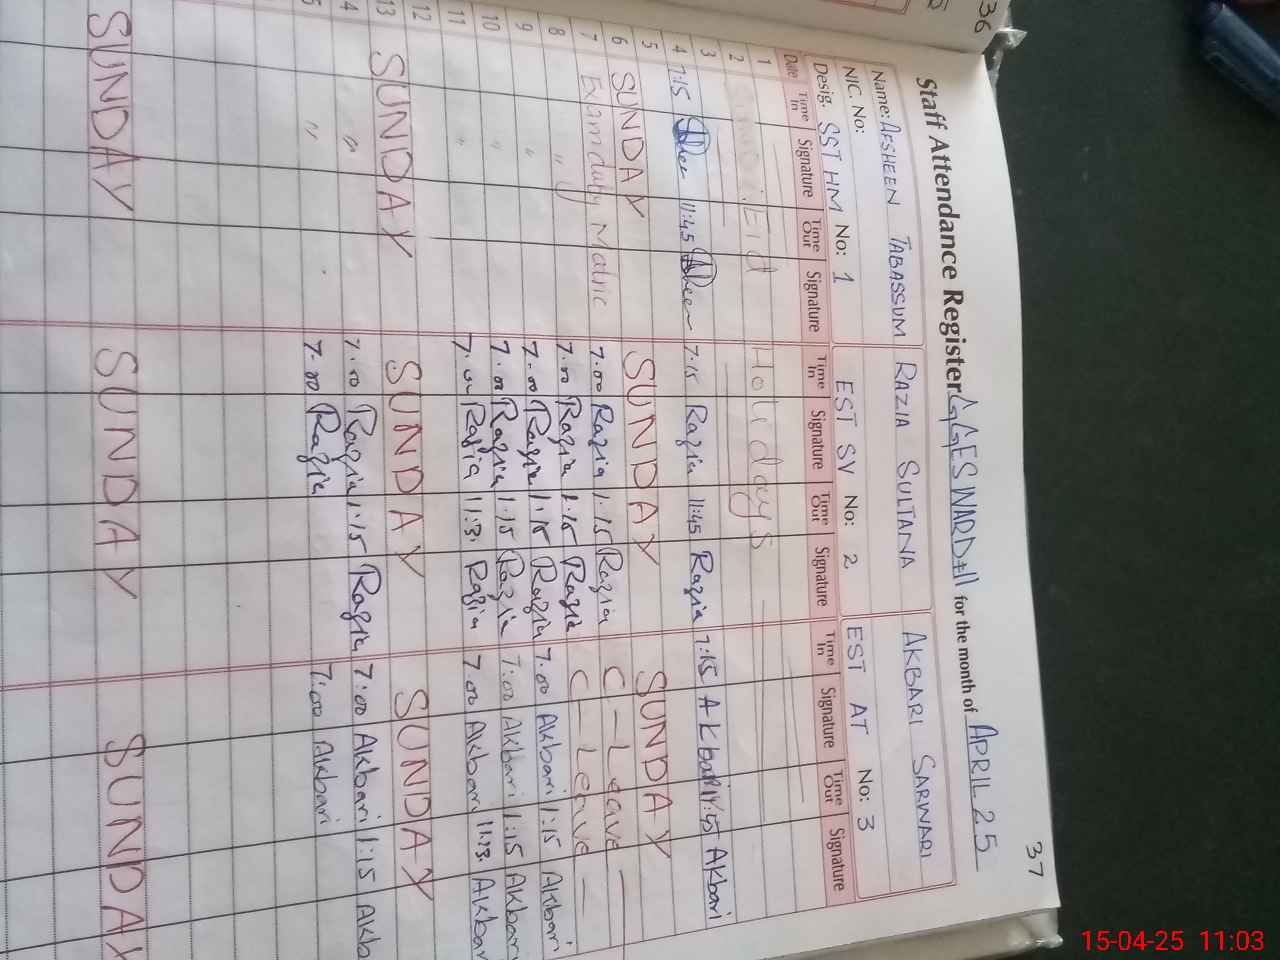 36
37
Staff Attendance Register GGES WARD#11 for the month of APRIL 25
Name: AFSHEEN TABASSUM RAZIA SULTANA AKBARI SARWARI
NIC. No:
Desig. SST HM No: 1 EST SV No: 2 EST AT No: 3
Date Time In Signature Time Out Signature Time In Signature Time Out Signature Time In Signature Time Out Signature
1
2 Eid Holidays
3
4 7:15 11:45 7.15 Razia 11:45 Razia 7:15 Akbari 11:45 Akbari
5
6 SUNDAY SUNDAY SUNDAY
7 Exam duty Matric 7.00 Razia 1.15 Razia C-Leave
8 " 7.00 Razia 1.15 Razia C-Leave
9 " 7.00 Razia 1.15 Razia 7.00 Akbari 1:15 Akbari
10 " 7.00 Razia 1.15 Razia 7:00 Akbari 1:15 Akbari
11 " 7.00 Razia 11:3 Razia 7 00 Akbari Akbar
12
13 SUNDAY SUNDAY SUNDAY
14 " 7.00 Razia 1.15 Razia 7:00 Akbari 1:15 Akb
15 " 7.00 Razia 7:00 Akbari
SUNDAY SUNDAY SUNDAY
15-04-25 11:03